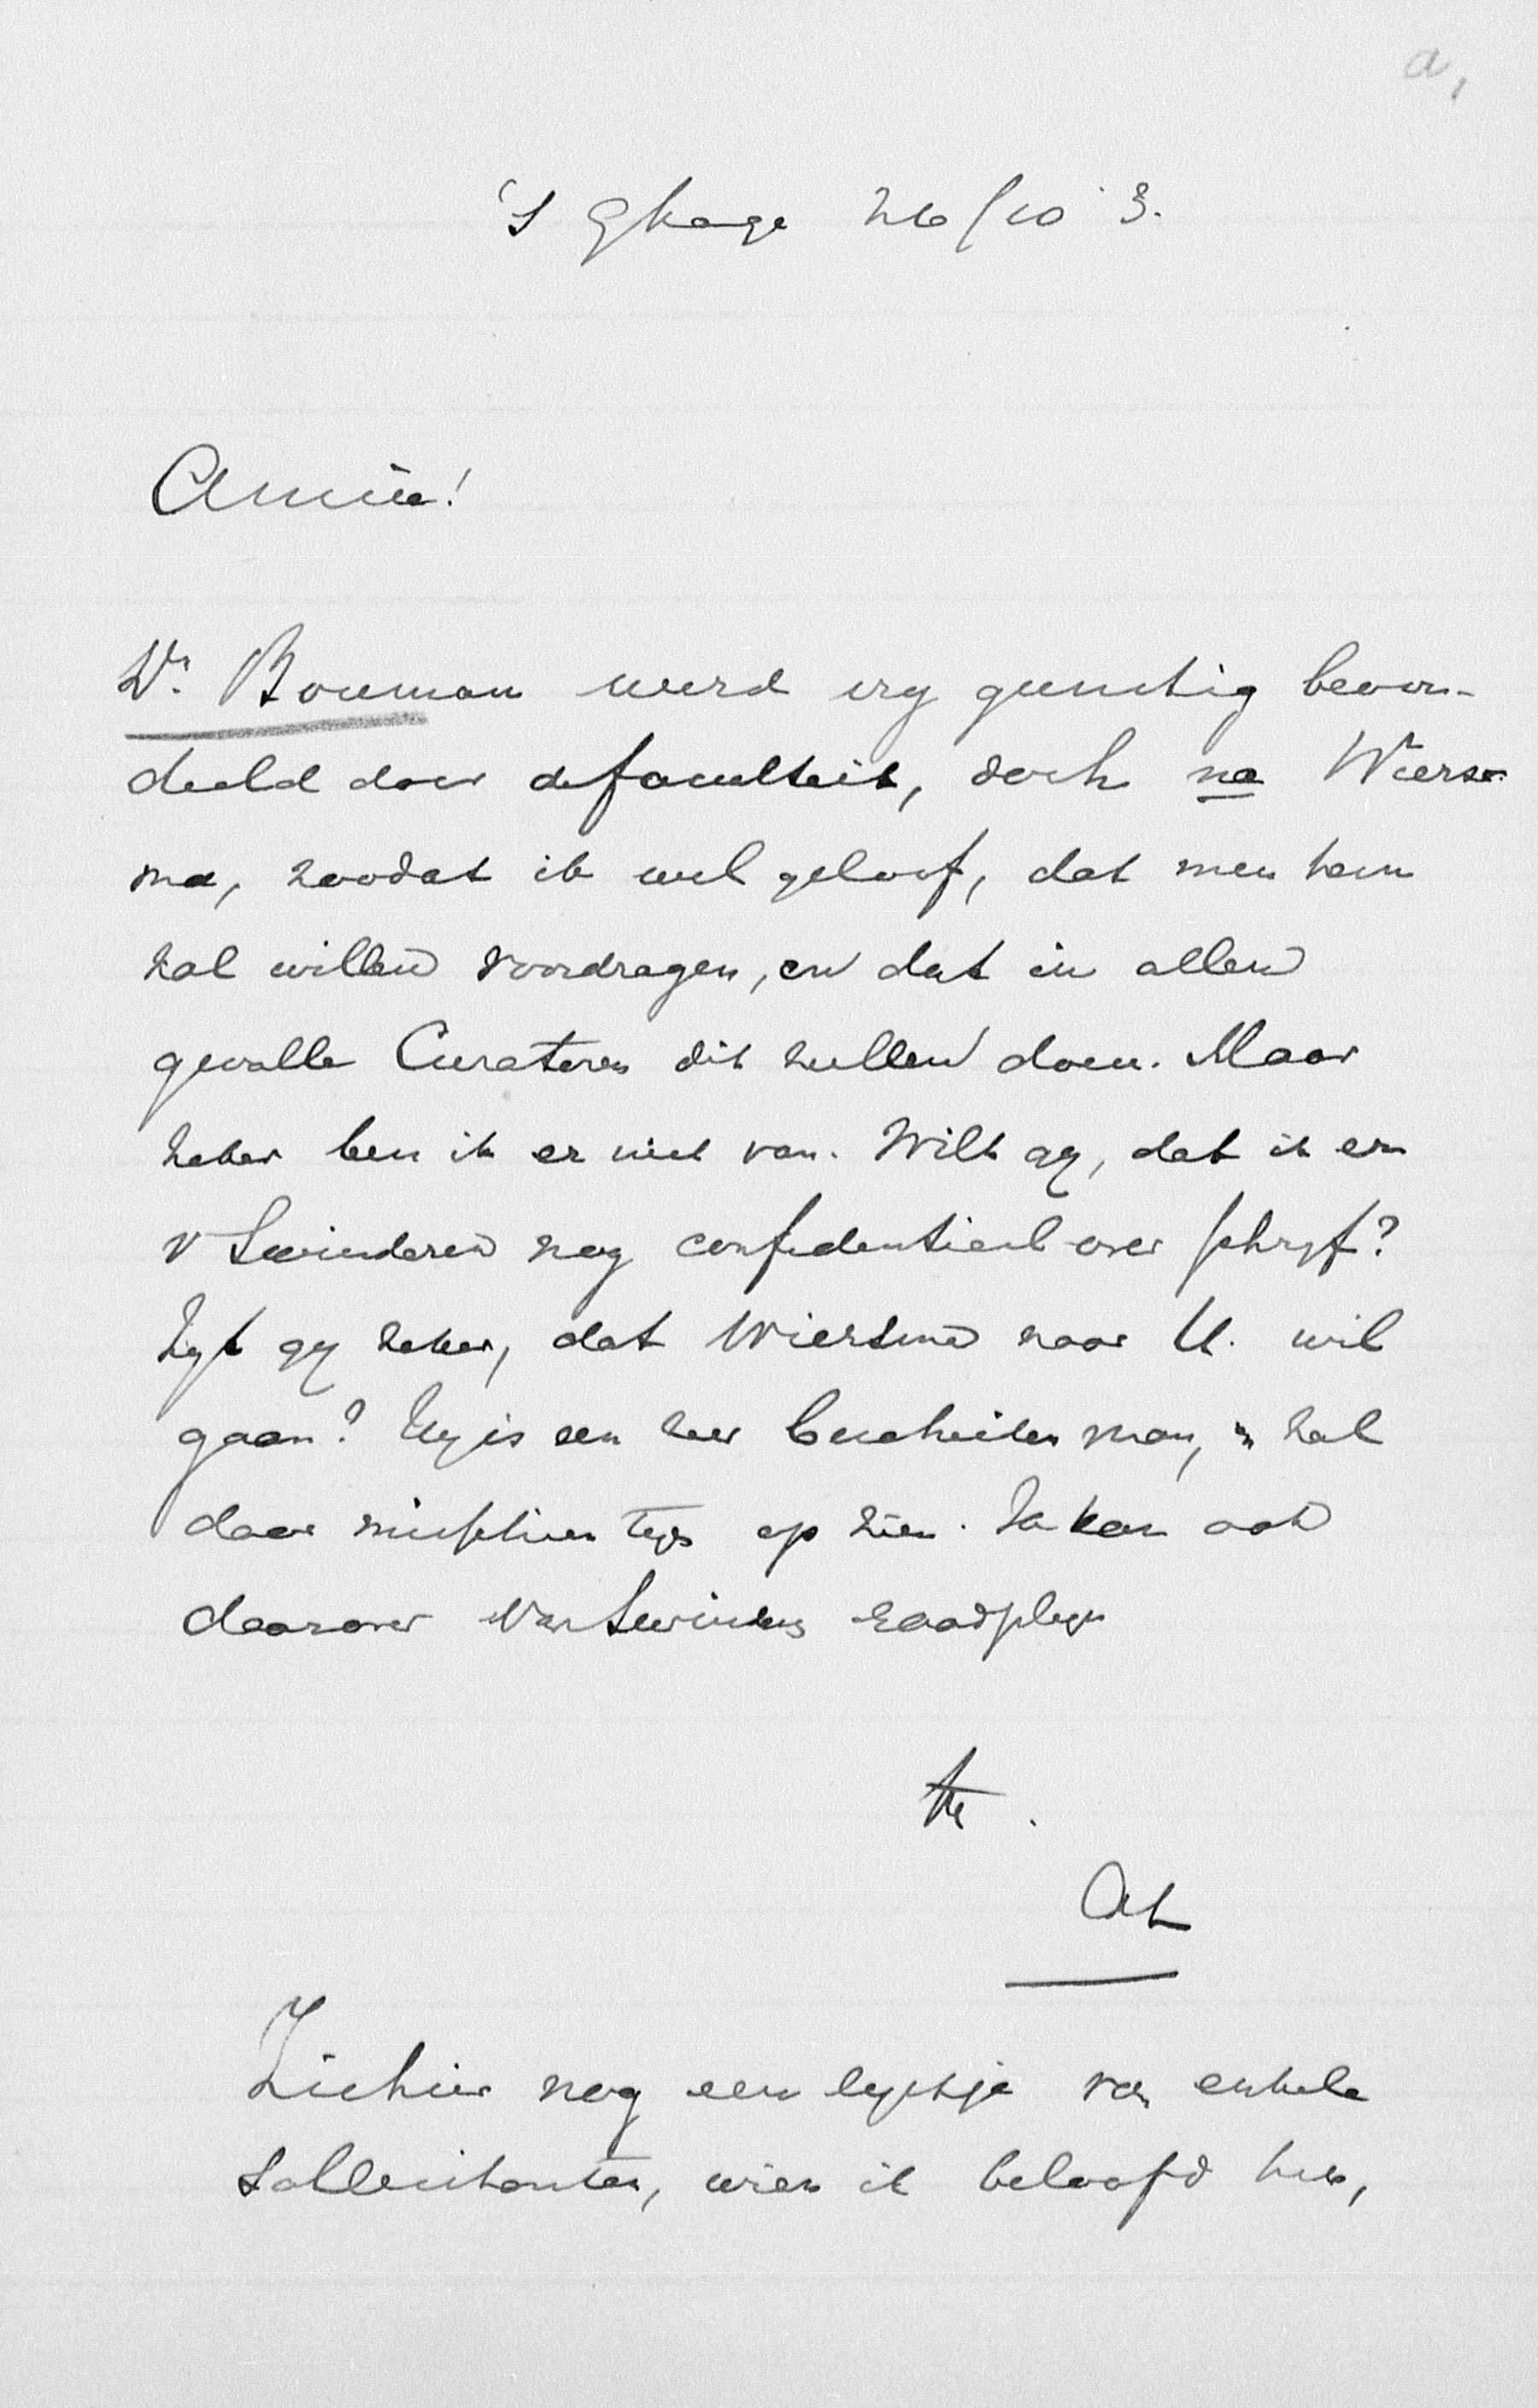 a,
's Ghage 26/10 3.
Amice!
Dr. Bouman werd erg gunstig beoor-
deeld door de faculteit, doch na Wiers-
ma, zoodat ik wel geloof, dat men hem
zal willen voordragen, en dat in allen
gevalle Curatoren dit zullen doen. Maar
zeker ben ik er niet van. Wilt gy, dat ik er
v Swinderen nog confidentieel over schryf?
Zyt gy zeker, dat Wiersma naar U. wil
gaan? Hy is een zeer bescheiden man, en zal
daar misschien tegen op zien. Ik kan ook
daarover van Swinderen raadplegen
tt.
Zichier nog een lystje van enkele
sollicitanten, wien ik beloofd heb,